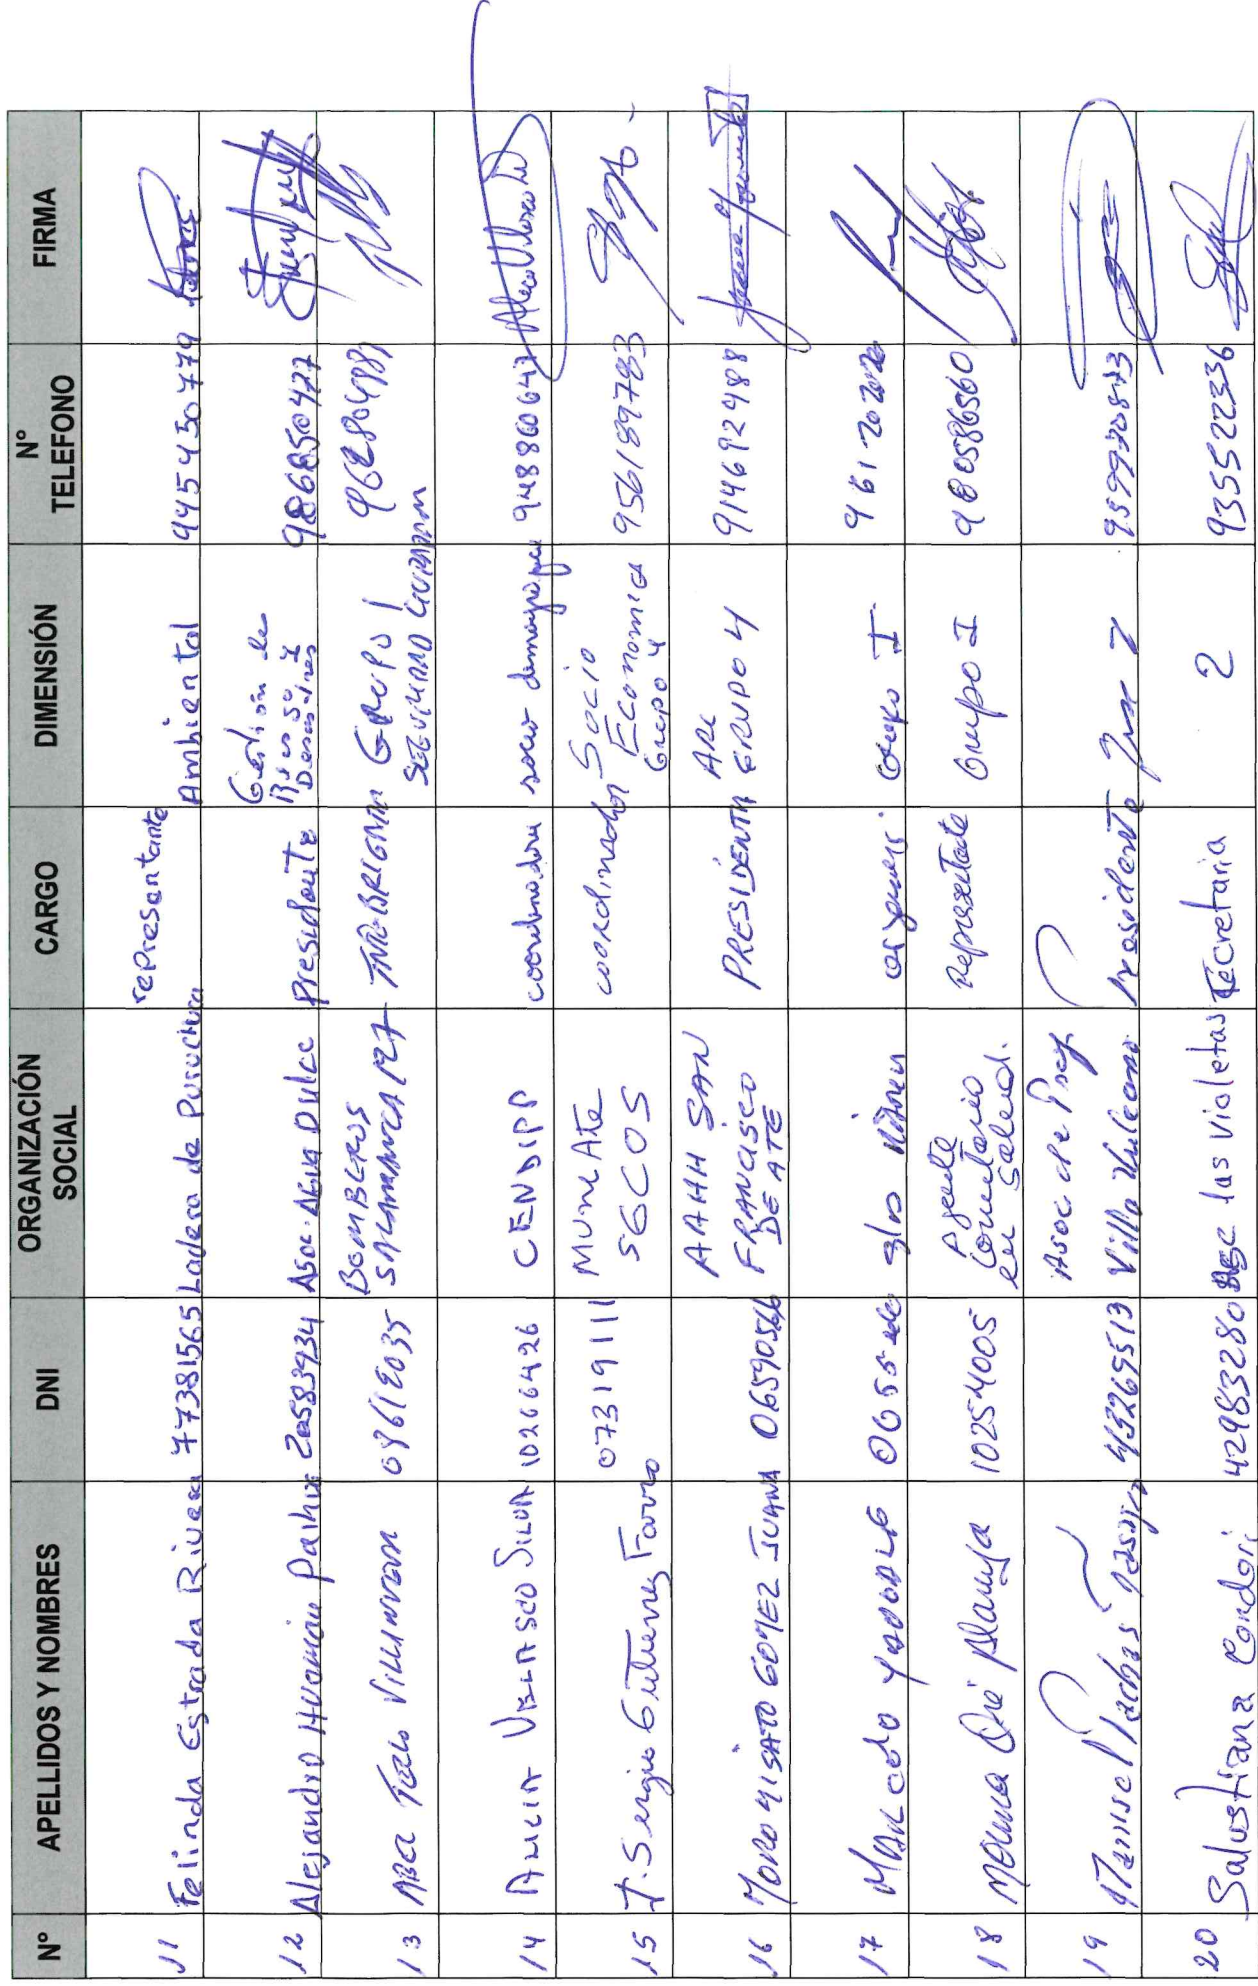 N° APELLIDOS Y NOMBRES DNI ORGANIZACIÓN SOCIAL CARGO DIMENSIÓN N° TELEFONO FIRMA
11 Felinda Estrada Rivera 77381565 Ladera de Puruchuco representante Ambiental 945450779
12 Alejandro Huamán Palhua 20583934 Asoc. Agua Dulce Presidente Gestión de Riesgos y Desastres 986850477
13 Villanueva 08612035 BOMBEROS SALAMANCA 127 GRUPO 1 SEGURIDAD CIUDADANA
14 ALICIA VELASCO SILVA 10266426 CENDIPP coordinadora socio demográfica 948860642
15 J. Sergio Gutierrez Farro 07319111 Muni Ate SGCOS coordinador Socio Economica Grupo 4 956189783
16 MOROMISATO GOMEZ JUANA 06590566 AAHH SAN FRANCISCO DE ATE PRESIDENTA GRUPO 4 914692488
17 Marcelo Grupo I
18 Oré 10254005 Agente Comunitario en Salud. Representate Grupo I 980586560
19 Manuel Pachas 43265513 Asoc de Prop Villa Vulcano Presidente
20 Salustiana Condori 42983280 las violetas Secretaria 2 935522336